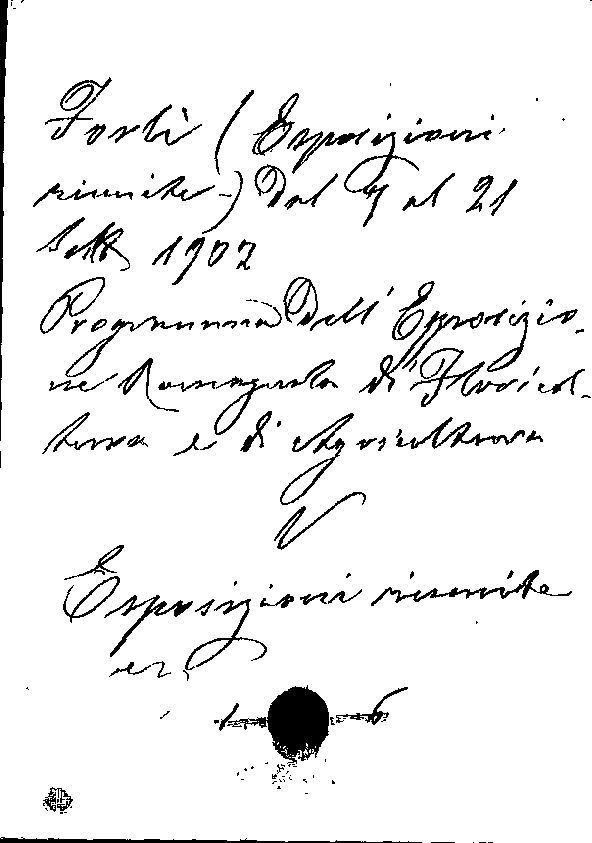 Forlì (Esposizioni
riunite) Dal 7 al 21
Sett 1902
Programma Dell' Esposizio-
ne Romagnola di Floricol-
tura e di Agricoltura
V
Esposizioni riunite
ecc.